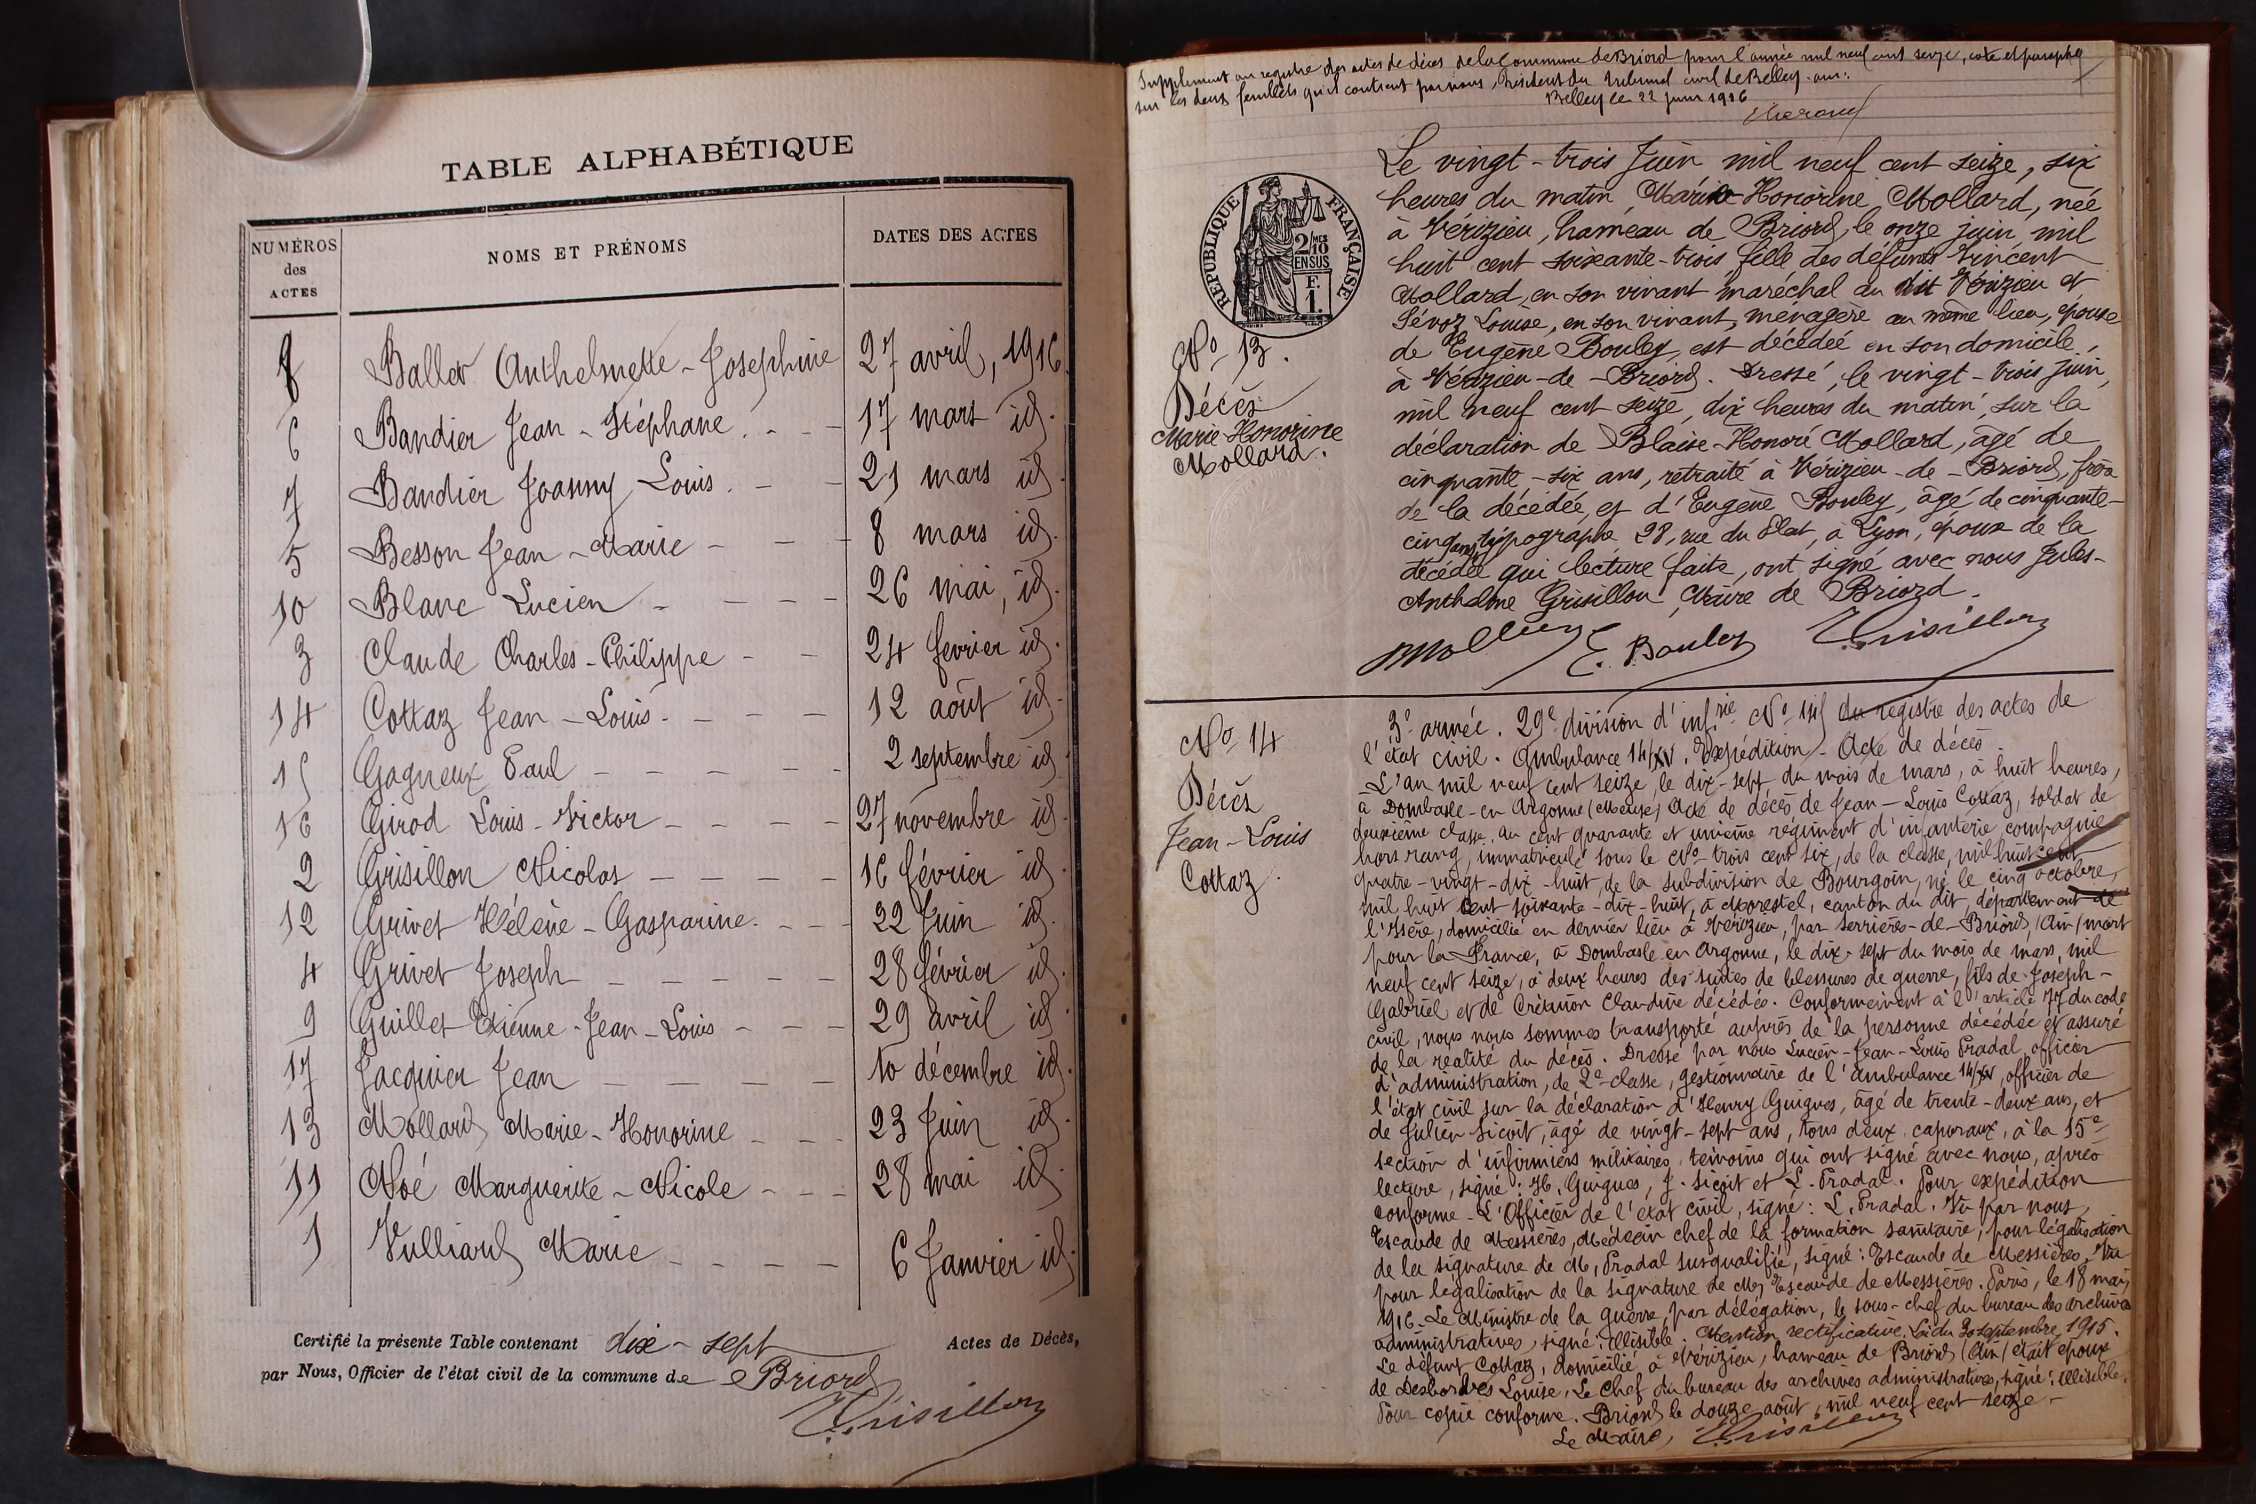 TABLE ALPHABÉTIQUE
NUMÉROS des ACTES
NOMS ET PRÉNOMS
DATES DES ACTES
8 Ballet Anthelmette - Josephine 27 avril, 1916
6 Bandier Jean - Stéphane 17 mars id.
7 Bandier Joanny Louis 21 mars id.
5 Besson Jean - Marie 8 mars id.
10 Blanc Lucien 26 mai, id.
3 Claude Charles - Philippe 24 fevrier id.
14 Cottaz Jean - Louis 12 août id.
15 Gagneux Paul 2 septembre id.
16 Girod Louis - Victor 27 novembre id.
2 Grisillon Nicolas 16 février id.
12 Grivet Hélène - Gasparine 22 Juin id.
4 Grivet Joseph 28 février id.
9 Guillet Etienne - Jean - Louis 29 avril id.
17 Jacquier Jean 10 décembre id.
13 Mollard Marie - Honorine 23 Juin id.
11 Noé Marguerite - Nicole 28 mai id.
1 Vulliard Marie 6 Janvier id.
Certifié la présente Table contenant dix - sept Actes de Décès,
par Nous, Officier de l'état civil de la commune de Briord
Grisillon
Supplement au registre des actes de décès de la Commune de Briord pour l'année mil neuf cent seize, coté et paraphé
sur les deux feuillets qu'il contient par nous, Président du tribunal civil de Belley - ain :
Belley le 22 juin 1916
RÉPUBLIQUE FRANÇAISE
2/10 MES
EN SUS
F. 1.
No 13.
Décès
Marie Honorine
Mollard.
Le vingt - trois Juin mil neuf cent seize, six
heures du matin, Marie Honorine Mollard, née
à Vérizieu, hameau de Briord, le onze juin mil
huit cent soixante - trois, fille des défunts Vincent
Mollard, en son vivant maréchal au dit Vérizieu et
Sévoz Louise, en son vivant, ménagère au même lieu, épouse
de Eugène Bouley, est décédée en son domicile,
à Vérizieu - de - Briord. Dressé, le vingt - trois juin,
mil neuf cent seize, dix heures du matin, sur la
déclaration de Blaise - Honoré Mollard, âgé de
cinquante - six ans, retraité à Vérizieu - de - Briord, frère
de la décédée, et d'Eugène Bouley, âgé de cinquante -
cinq ans, typographe 28, rue du Plat, à Lyon, époux de la
décédée qui lecture faite, ont signé avec nous Jules -
Anthelme Grisillon, Maire de Briord.
BMollard E. Bouley Grisillon
No 14
Décès
Jean - Louis
Cottaz.
3e armée. 29e division d'infrie No 145 du registre des actes de
l'état civil. Ambulance 14/XV. Expédition - Acte de décès.
L'an mil neuf cent seize, le dix - sept du mois de mars, à huit heures,
à Dombasle - en Argonne (Meuse) Acte de décès de Jean - Louis Cottaz, soldat de
deuxième classe, au cent quarante et unième régiment d'infanterie, compagnie
hors rang, immatriculé sous le No trois cent six, de la classe, mil huit cent
quatre - vingt - dix - huit, de la subdivision de Bourgoin, né le cinq octobre,
mil huit cent soixante - dix - huit, à Morestel, canton du dit, département de
l'Isère, domicilié en dernier lieu à Vérizieu, par Serrières - de - Briord, (Ain) mort
pour la France, à Dombasle en Argonne, le dix - sept du mois de mars, mil
neuf cent seize, à deux heures des suites de blessures de guerre, fils de Joseph -
Gabriel et de Crétinon Claudine décédés. Conformément à l'article 77 du code
civil, nous nous sommes transporté auprès de la personne décédée et assuré
de la réalité du décès. Dressé par nous Lucien - Jean - Louis Pradal, officier
d'administration, de 2e classe, gestionnaire de l'ambulance 14/XV, officier de
l'état civil sur la déclaration d'Henry Guigues, âgé de trente - deux ans, et
de Julien Sicoit, âgé de vingt - sept ans, tous deux caporaux, à la 15e
section d'infirmiers militaires, témoins qui ont signé avec nous, après
lecture, signé : H. Guigues, J. Sicoit et L. Pradal. Pour expédition
conforme - L'Officier de l'état civil, signé : L. Pradal. Vu par nous
Escande de Messières, Médecin chef de la formation sanitaire, pour légalisation
de la signature de M. Pradal susqualifié, signé : Escande de Messières. Vu
pour légalisation de la signature de M. Escande de Messières. Paris, le 18 mai,
1916. Le Ministre de la guerre, par délégation, le sous - chef du bureau des archives
administratives, signé : illisible. Mention rectificative, Loi du 30 septembre 1915.
Le défunt Cottaz, domicilié à Vérizieu, hameau de Briord (Ain) était époux
de Desbordes Louise. Le Chef du bureau des archives administratives, signé : illisible.
Pour copie conforme. Briord le douze août, mil neuf cent seize -
Le Maire, Grisillon